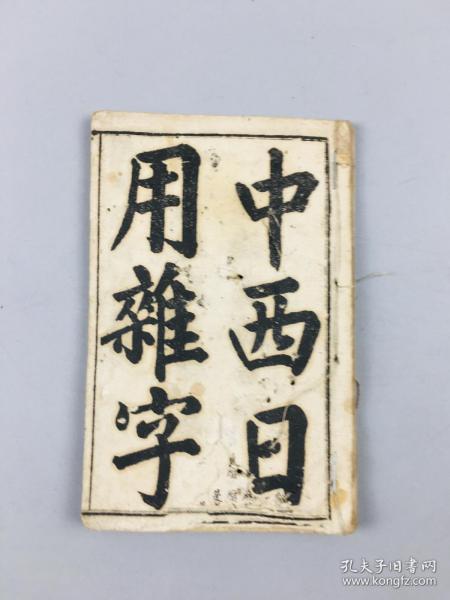 中西日
用雜字
孔夫子旧书网
www.kongfz.com